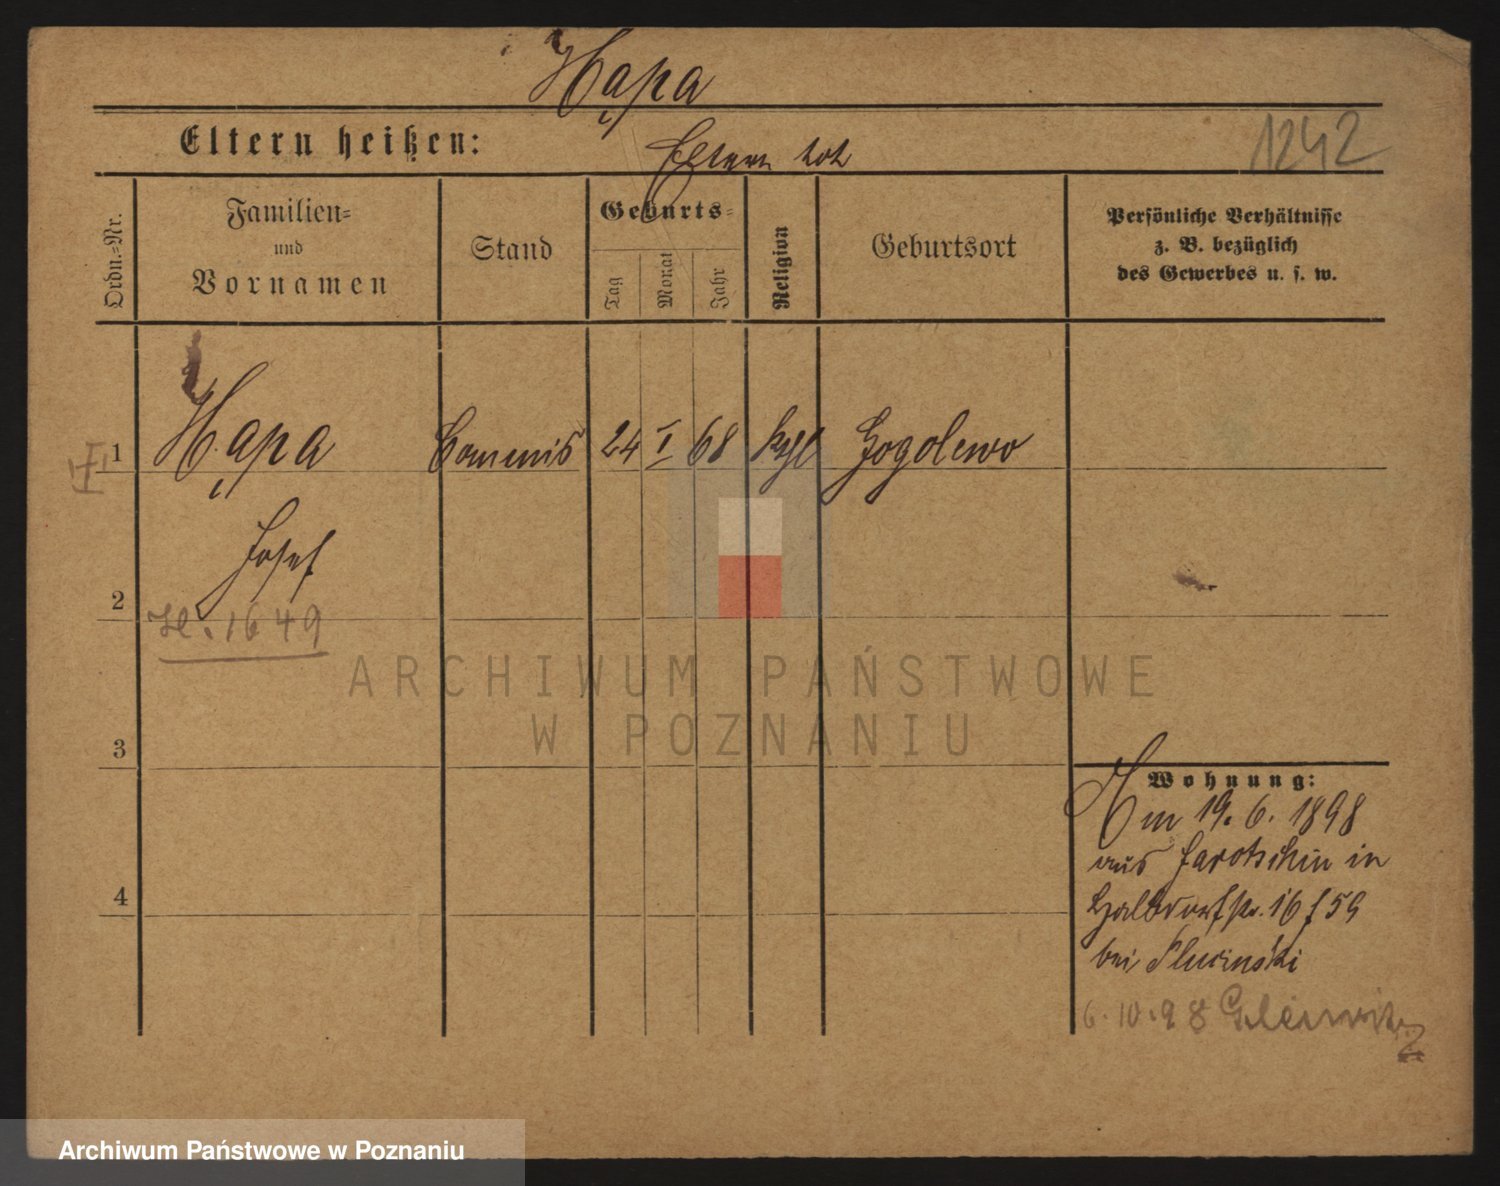 Hąpa
Eltern heißen:
Eltern tot
1242
Ordn.=Nr.
Familien=
und
Vornamen
Stand
Geburts=
Tag
Monat
Jahr
Religion
Geburtsort
Persönliche Verhältnisse
z. B. bezüglich
des Gewerbes u. s. w.
1
Hąpa
Commis
24
I
68
kathl
Gogolewo
Josef
2
H. 1649
ARCHIWUM PAŃSTWOWE
W POZNANIU
3
Wohnung:
Am 19. 6. 1898
aus Jarotschin in
Halbdorfstr. 16 f 59
bei Slucinski
4
6. 10. 98 Gleiwitz
Archiwum Państwowe w Poznaniu